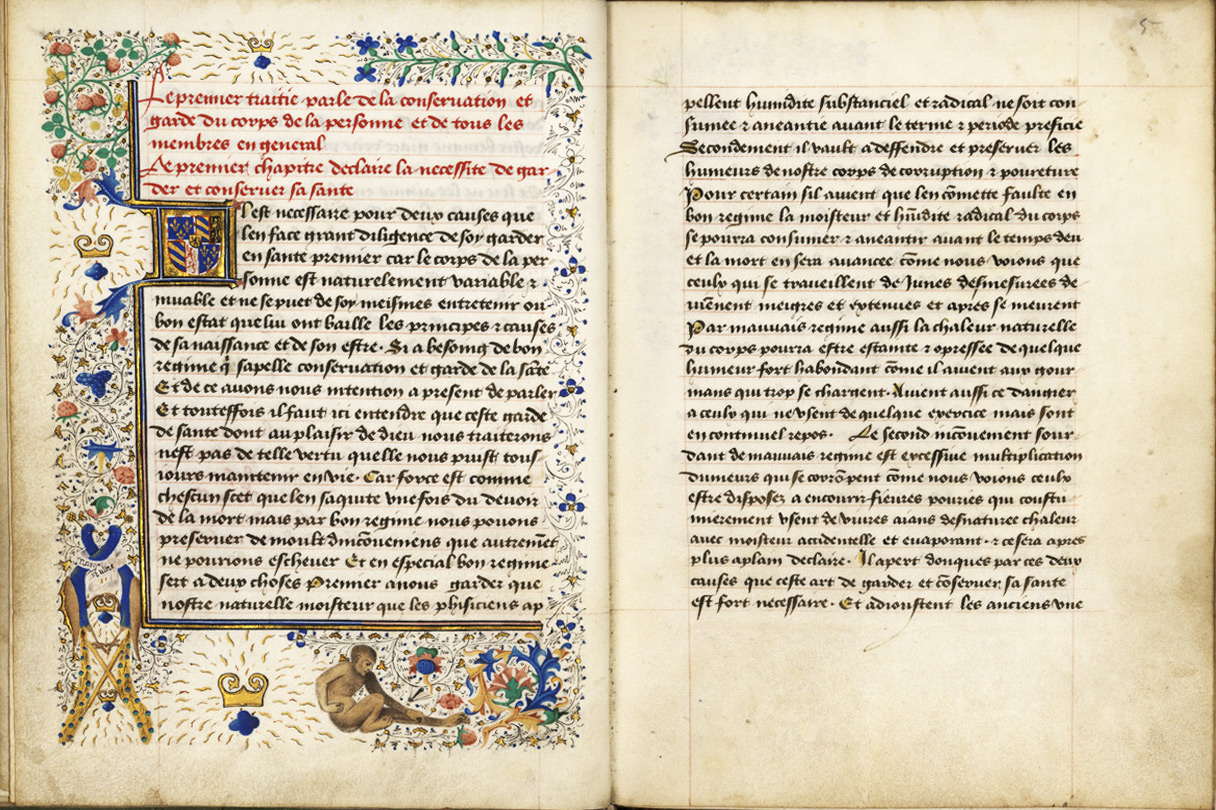 Le premier traitie parle de la conservation et
garde du corps de la personne et de tous les
membres en general
Le premier chapitre declaire la necessite de gar
der et conserver sa sante
Il est necessaire pour deux causes que
len face grant diligence de soy garder
en sante premier car le corps de la per
sonne est naturelement variable ⁊
muable et ne se puet de soy meismes entretenir ou
bon estat que lui ont baille les principes ⁊ causes
de sa naissance et de son estre. Si a besoing de bon
regime q̇ sapelle conservation et garde de la sāte
Et de ce avons nous intention a present de parler
Et touteffois il faut ici entendre que ceste garde
de sante dont au plaisir de dieu nous traiterons
nest pas de telle vertu quelle nous puist tous
iours maintenir en vie. Car force est comme
chescun scet que len saquite une fois du devoir
de la mort mais par bon regime nous povons
preserver de moult dincōveniens que autremēt
ne pourions eschever Et en especial bon regime
sert a deux choses Premier a nous garder que
nostre naturelle moisteur que les phisiciens ap
5
pellent humidite substanciel et radical ne soit con
sumee ⁊ aneantie avant le terme ⁊ periode preficie
Secondement il vault a deffendre et preserver les
humeurs de nostre corps de corruption ⁊ poureture
Pour certain sil avient que len cōmette faulte en
bon regime la moisteur et hūidite radical du corps
se pourra consumer ⁊ aneantir avant le temps deu
et la mort en sera avancee cōme nous voions que
ceulx qui se traveillent de Iunes desmesurees de
viēnent meigres et extenues et apres se meurent
Par mauvais regime aussi la chaleur naturelle
du corps pourra estre estainte ⁊ opressee de quelque
humeur fort habondant cōme il avient aux gour
mans qui trop se chargent. Avient aussi ce dangier
a ceulx qui ne usent de quelque exercice mais sont
en continuel repos. Le second incōvenient sour
dant de mauvais regime est excessive multiplication
dumeurs qui se corrōpent cōme nous voions ceulx
estre disposez a encourir fievres pouries qui coustu
mierement usent de vivres aians desnaturee chaleur
avec moisteur accidentelle et evaporant. ⁊ ce sera apres
plus aplain declaire. Il apert donques par ces deux
causes que ceste art de garder et cōserver sa sante
est fort necessaire. Et adioustent les anciens une